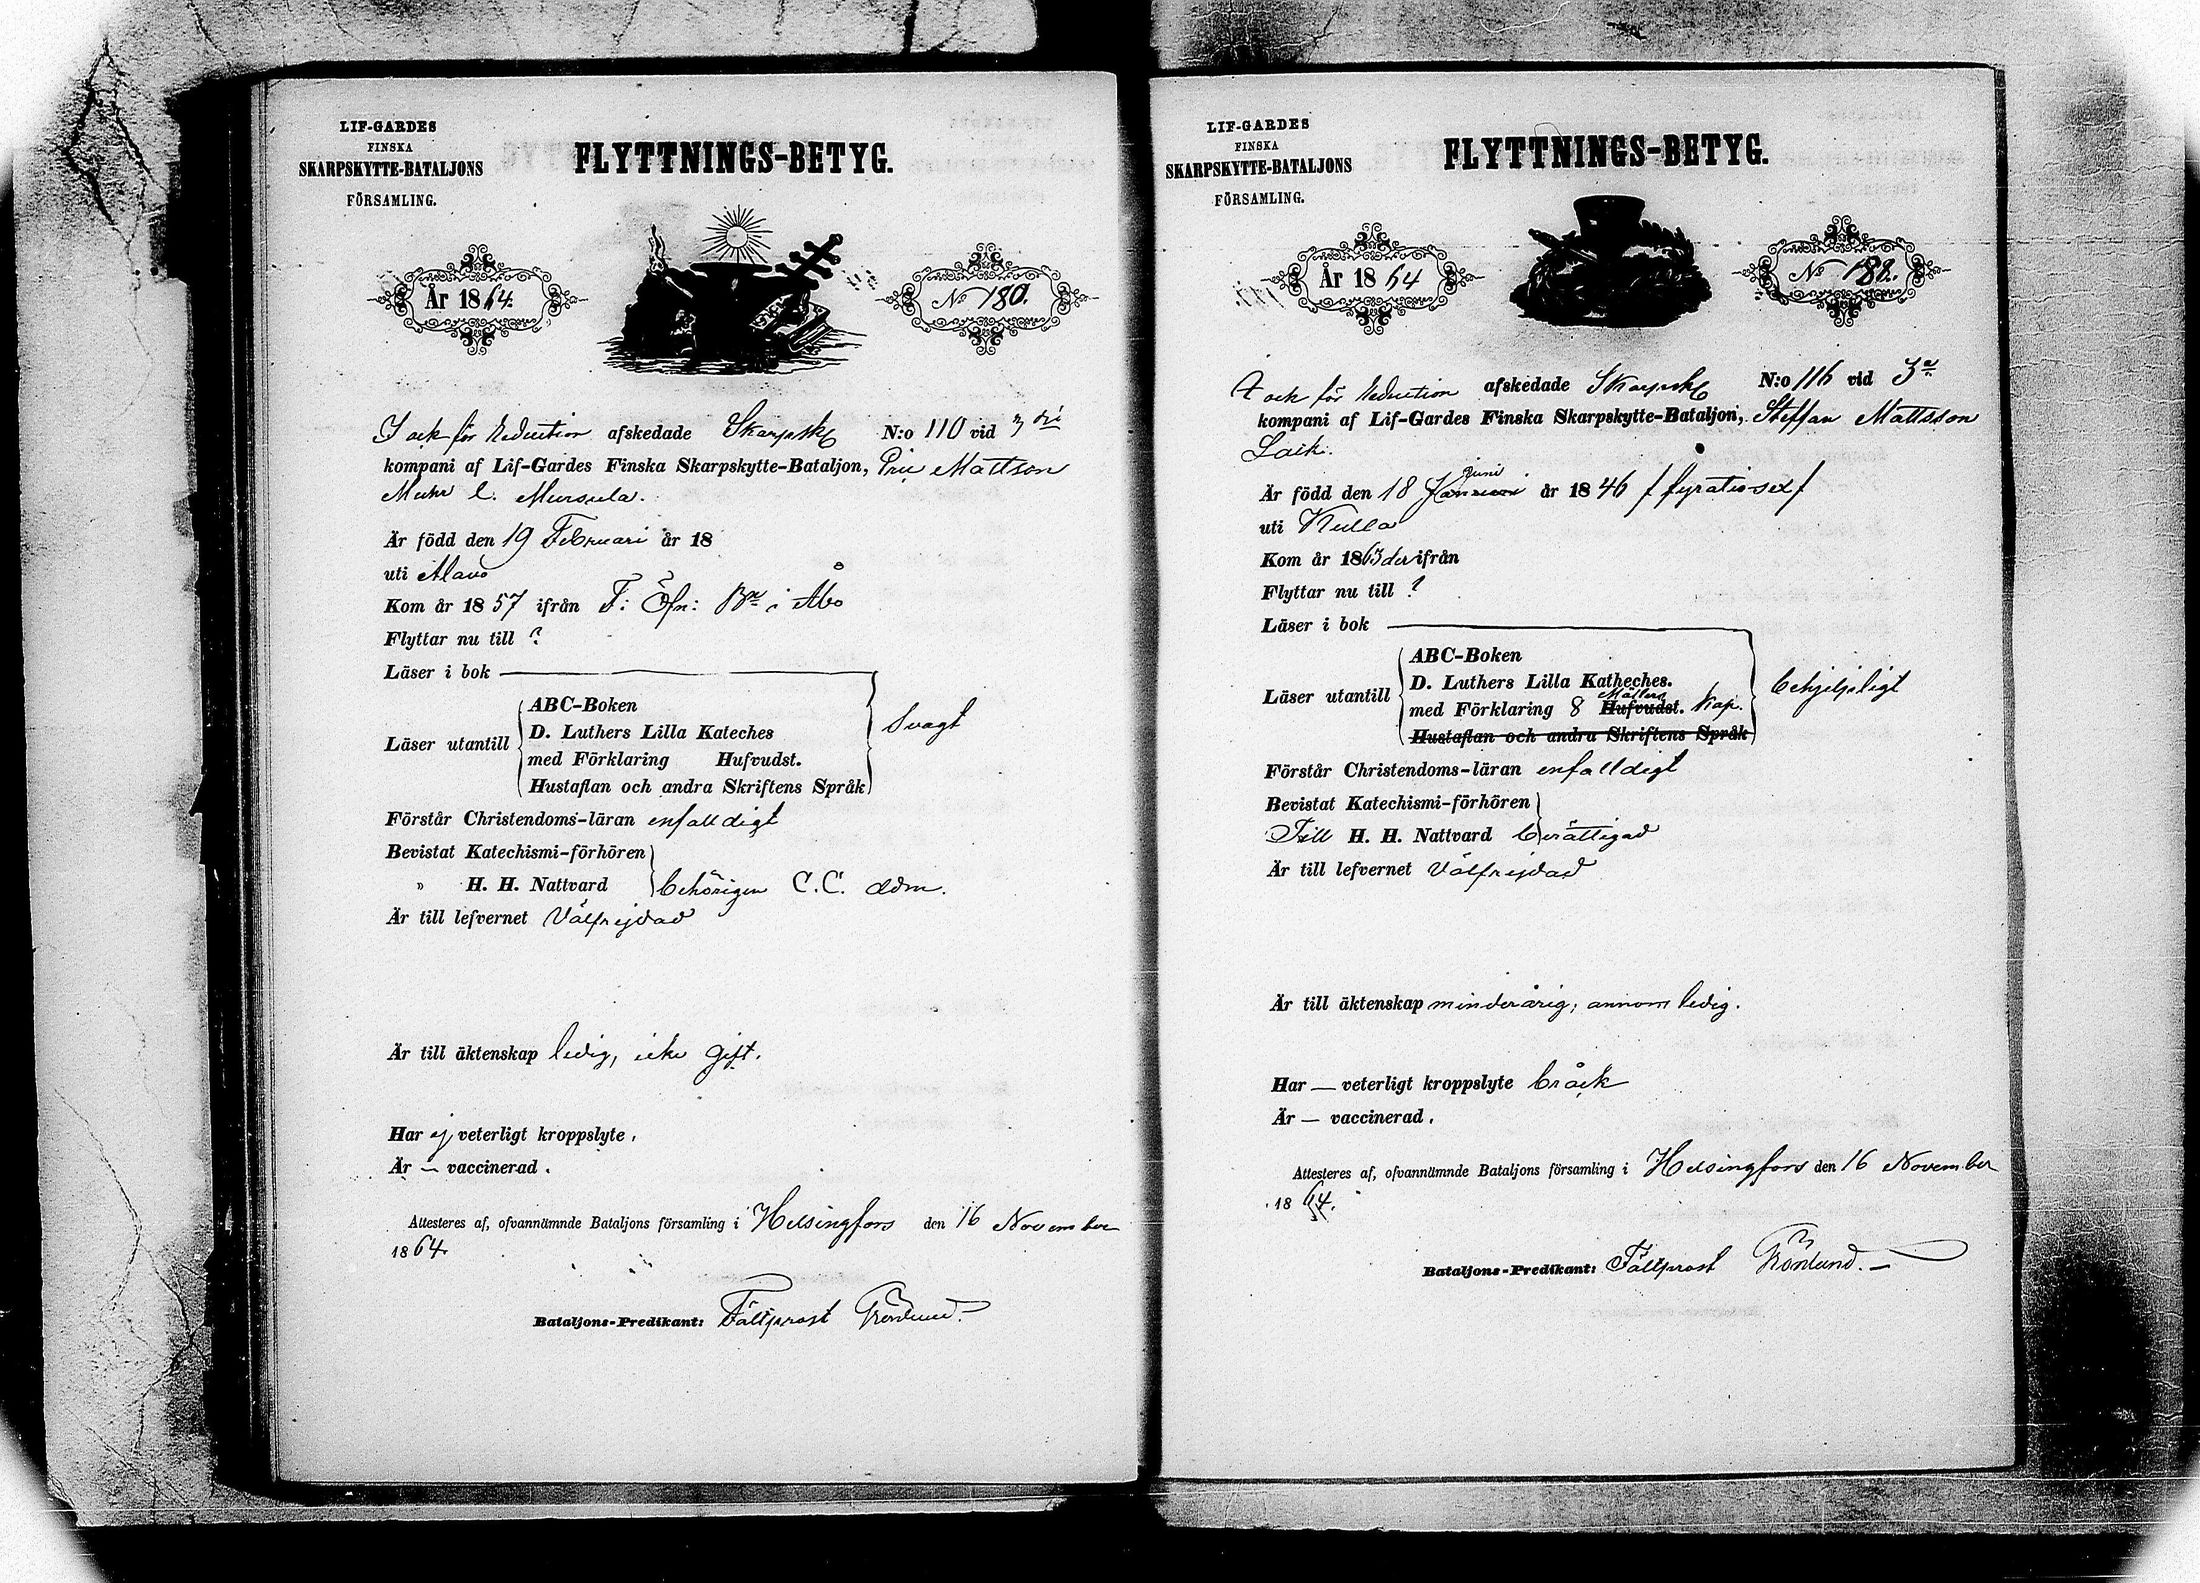 LIF-GARDES
FINSKA
SKARPSKYTTE-BATALJONS
FÖRSAMLING.
FLYTTNINGS-BETYG.
År 1864.
No 180.
och för Reduction afskedade Skarpsk N:o 110 vid 3
kompani af Lif-Gardes Finska Skarpskytte-Bataljon, Mattson
Mursula.
Är född den 19 Februari år 18
uti Alavo
Kom år 1857 ifrån F: i Åbo
Flyttar nu till ?
Läser i bok
Läser utantill
ABC-Boken
D. Luthers Lilla Kateches
med Förklaring Hufvudst.
Hustaflan och andra Skriftens Språk
Svagt
Förstår Christendoms-läran enfalldigt
Bevistat Katechismi-förhören
" H. H. Nattvard behörigen C.C. adm.
Är till lefvernet Välfrejdad
Är till äktenskap ledig, icke gift.
Har ej veterligt kroppslyte.
Är — vaccinerad.
Attesteres af, ofvannämnde Bataljons församling i Helsingfors den 16 November
1864.
Bataljons-Predikant: Fältprost Grönlund.
LIF-GARDES
FINSKA
SKARPSKYTTE-BATALJONS
FÖRSAMLING.
FLYTTNINGS-BETYG.
År 1864
No 181.
och för Reduction afskedade Skarpsk N:o 116 vid 3e
kompani af Lif-Gardes Finska Skarpskytte-Bataljon, Steffan Mattsson
juni
Är född den 18 år 1846 / fyratiosex /
uti Kulla
Kom år 1863 der ifrån
Flyttar nu till ?
Läser i bok
Läser utantill
ABC-Boken
D. Luthers Lilla Katheches.
med Förklaring 8 Möllers Hufvudst. Kap.
Hustaflan och andra Skriftens Språk
behjelpligt
Förstår Christendoms-läran enfalldigt
Bevistat Katechismi-förhören
Till H. H. Nattvard berättigad
Är till lefvernet Välfrejdad
Är till äktenskap minderårig, annors ledig.
Har — veterligt kroppslyte bråck
Är — vaccinerad.
Attesteres af, ofvannämnde Bataljons församling i Helsingfors den 16 November
1864.
Bataljons-Predikant: Fältprost Grönlund.